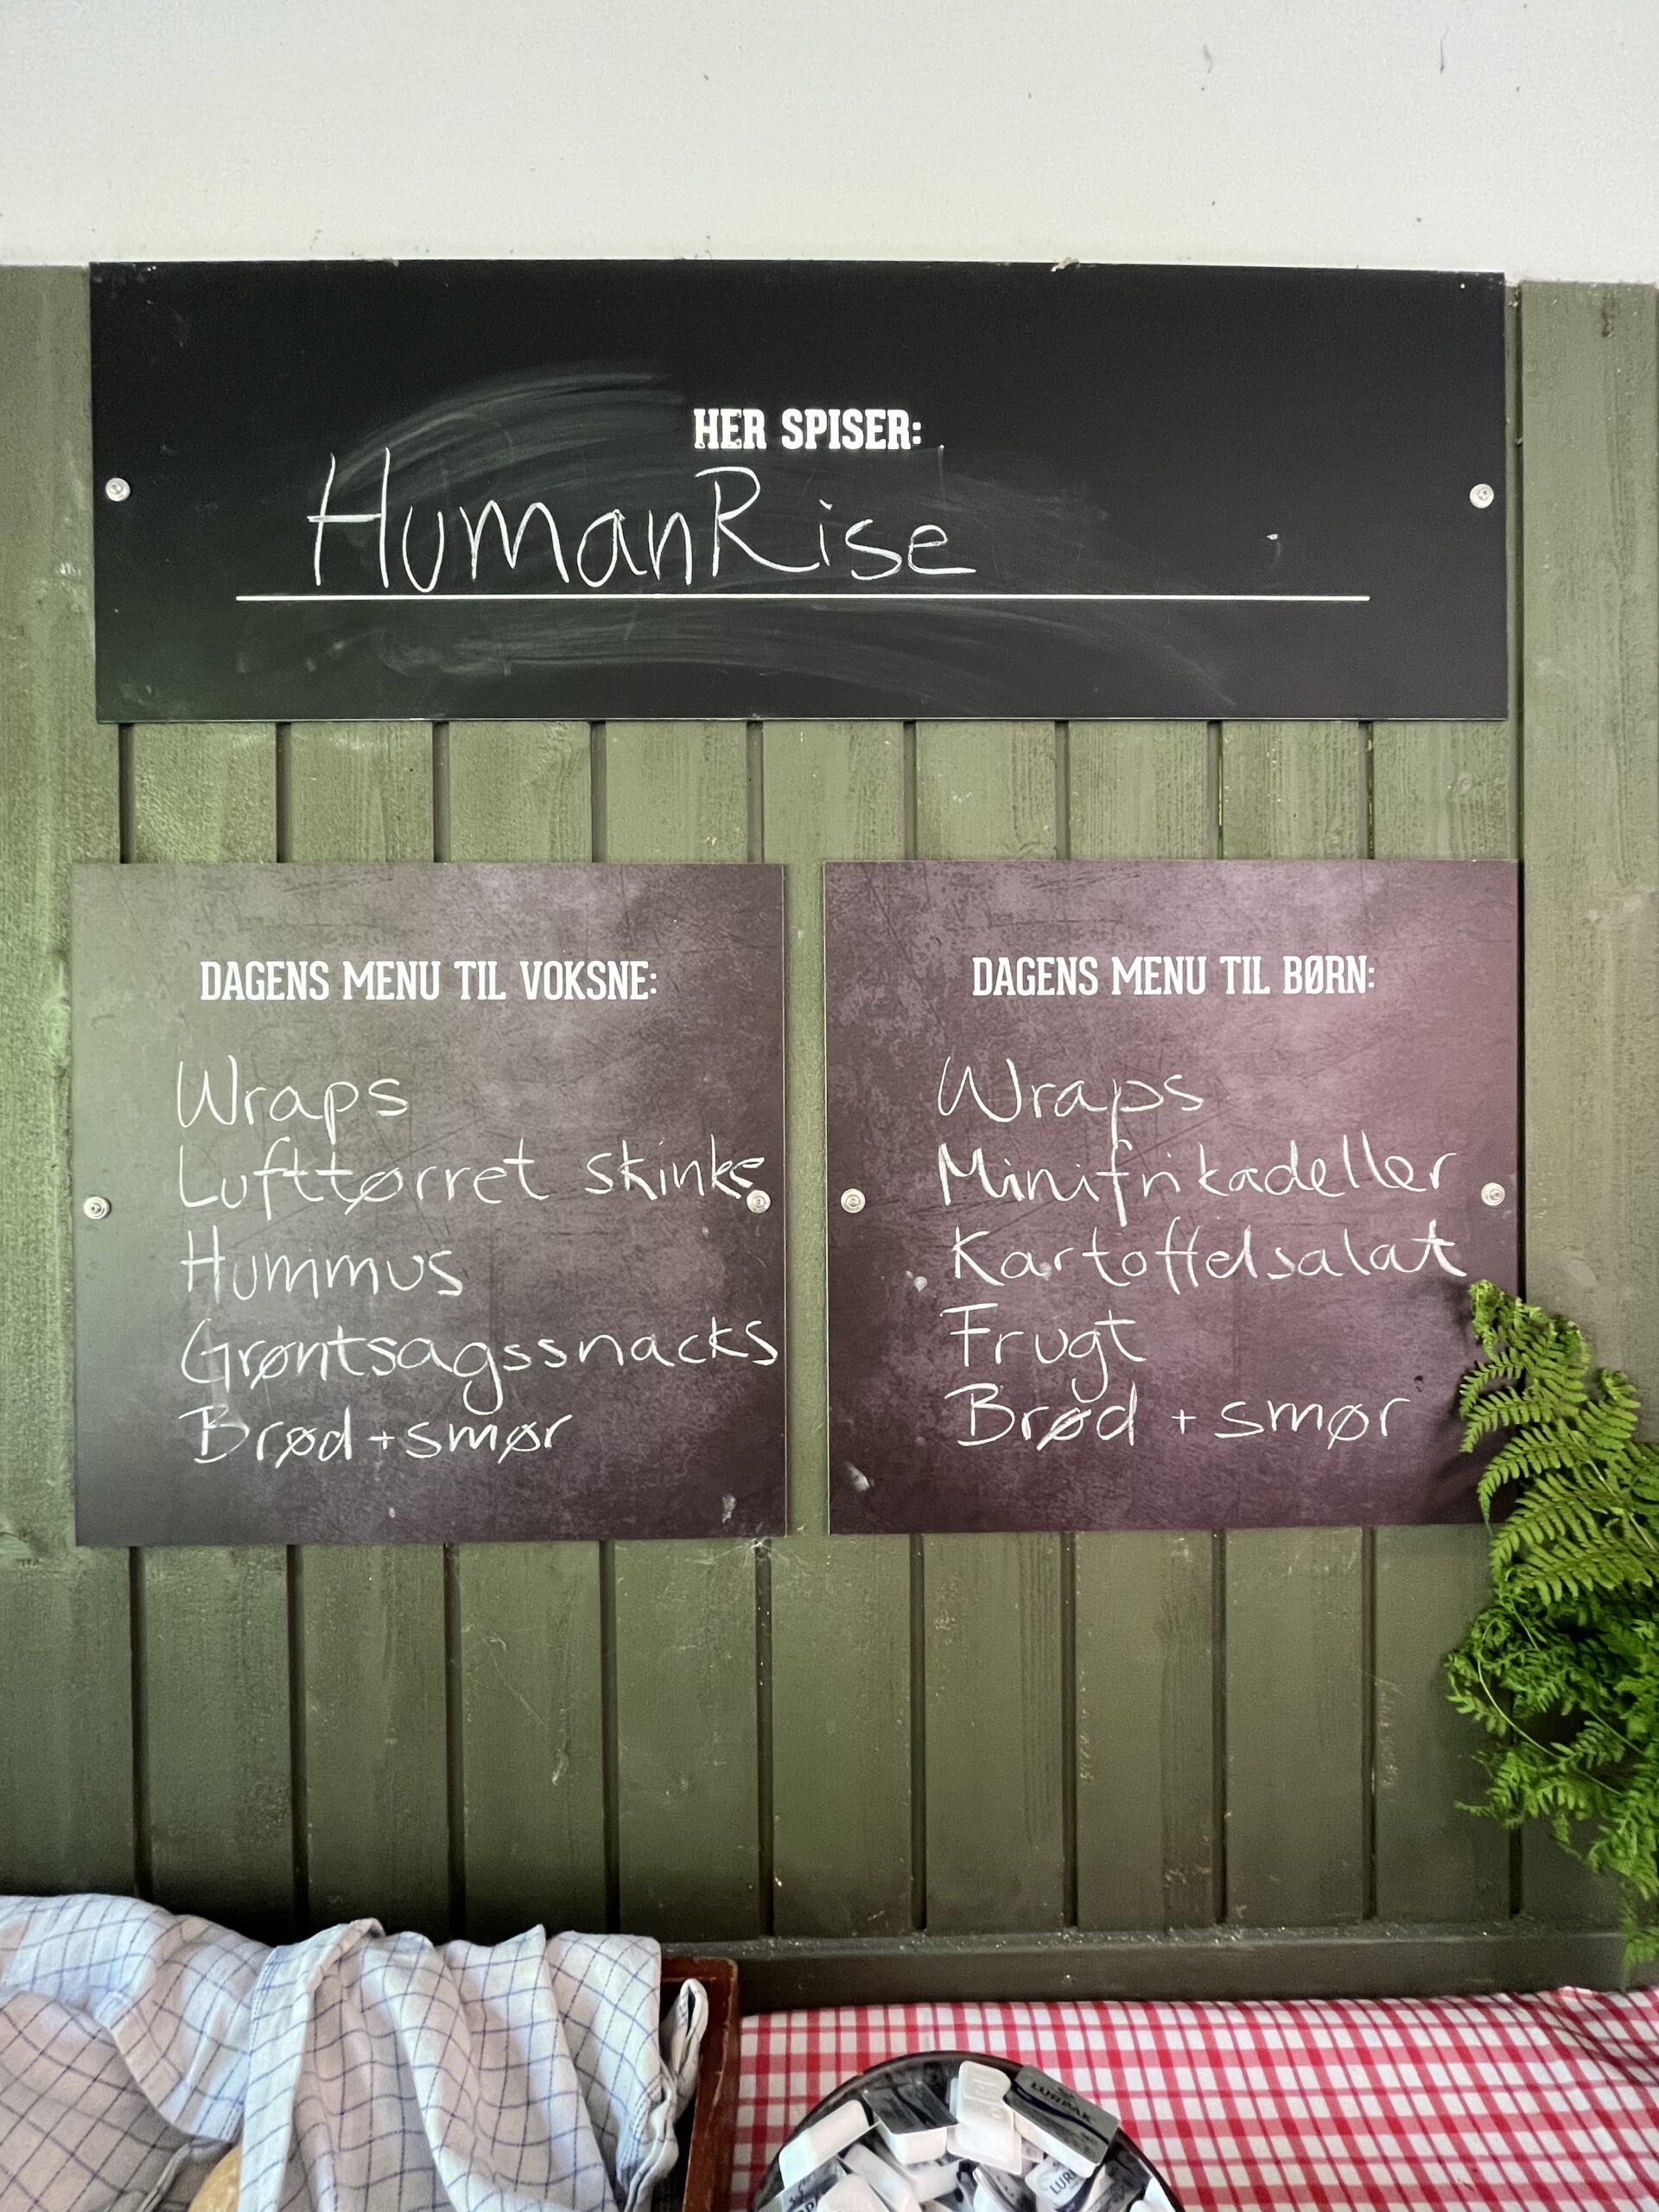 HER SPISER:
HumanRise
DAGENS MENU TIL VOKSNE:
Wraps
Lufttørret skinke
Hummus
Grøntsagssnacks
Brød + smør
DAGENS MENU TIL BØRN:
Wraps
Minifrikadeller
Kartoffelsalat
Frugt
Brød + smør
LURPAK